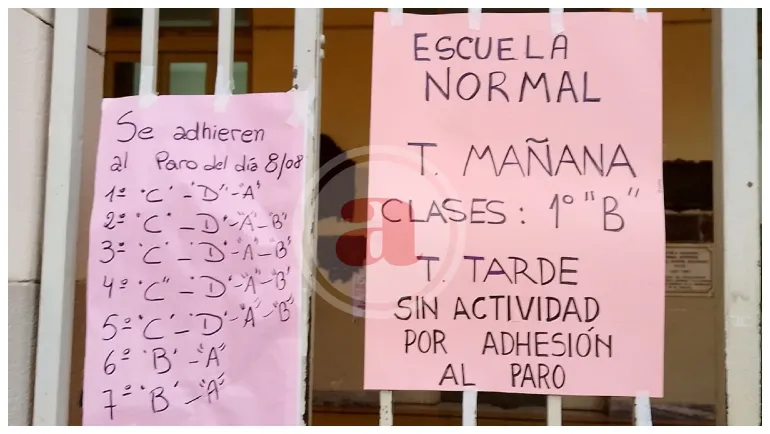 Se adhieren
al Paro del día 8/08
1º "C" - "D" - "A"
2º "C" - "D" - "A" - "B"
3º "C" - "D" - "A" - "B"
4º "C" - "D" - "A" - "B"
5º "C" - "D" - "A" - "B"
6º "B" - "A"
7º "B" - "A"
ESCUELA
NORMAL
T. MAÑANA
CLASES: 1º "B"
T. TARDE
SIN ACTIVIDAD
POR ADHESIÓN
AL PARO
a